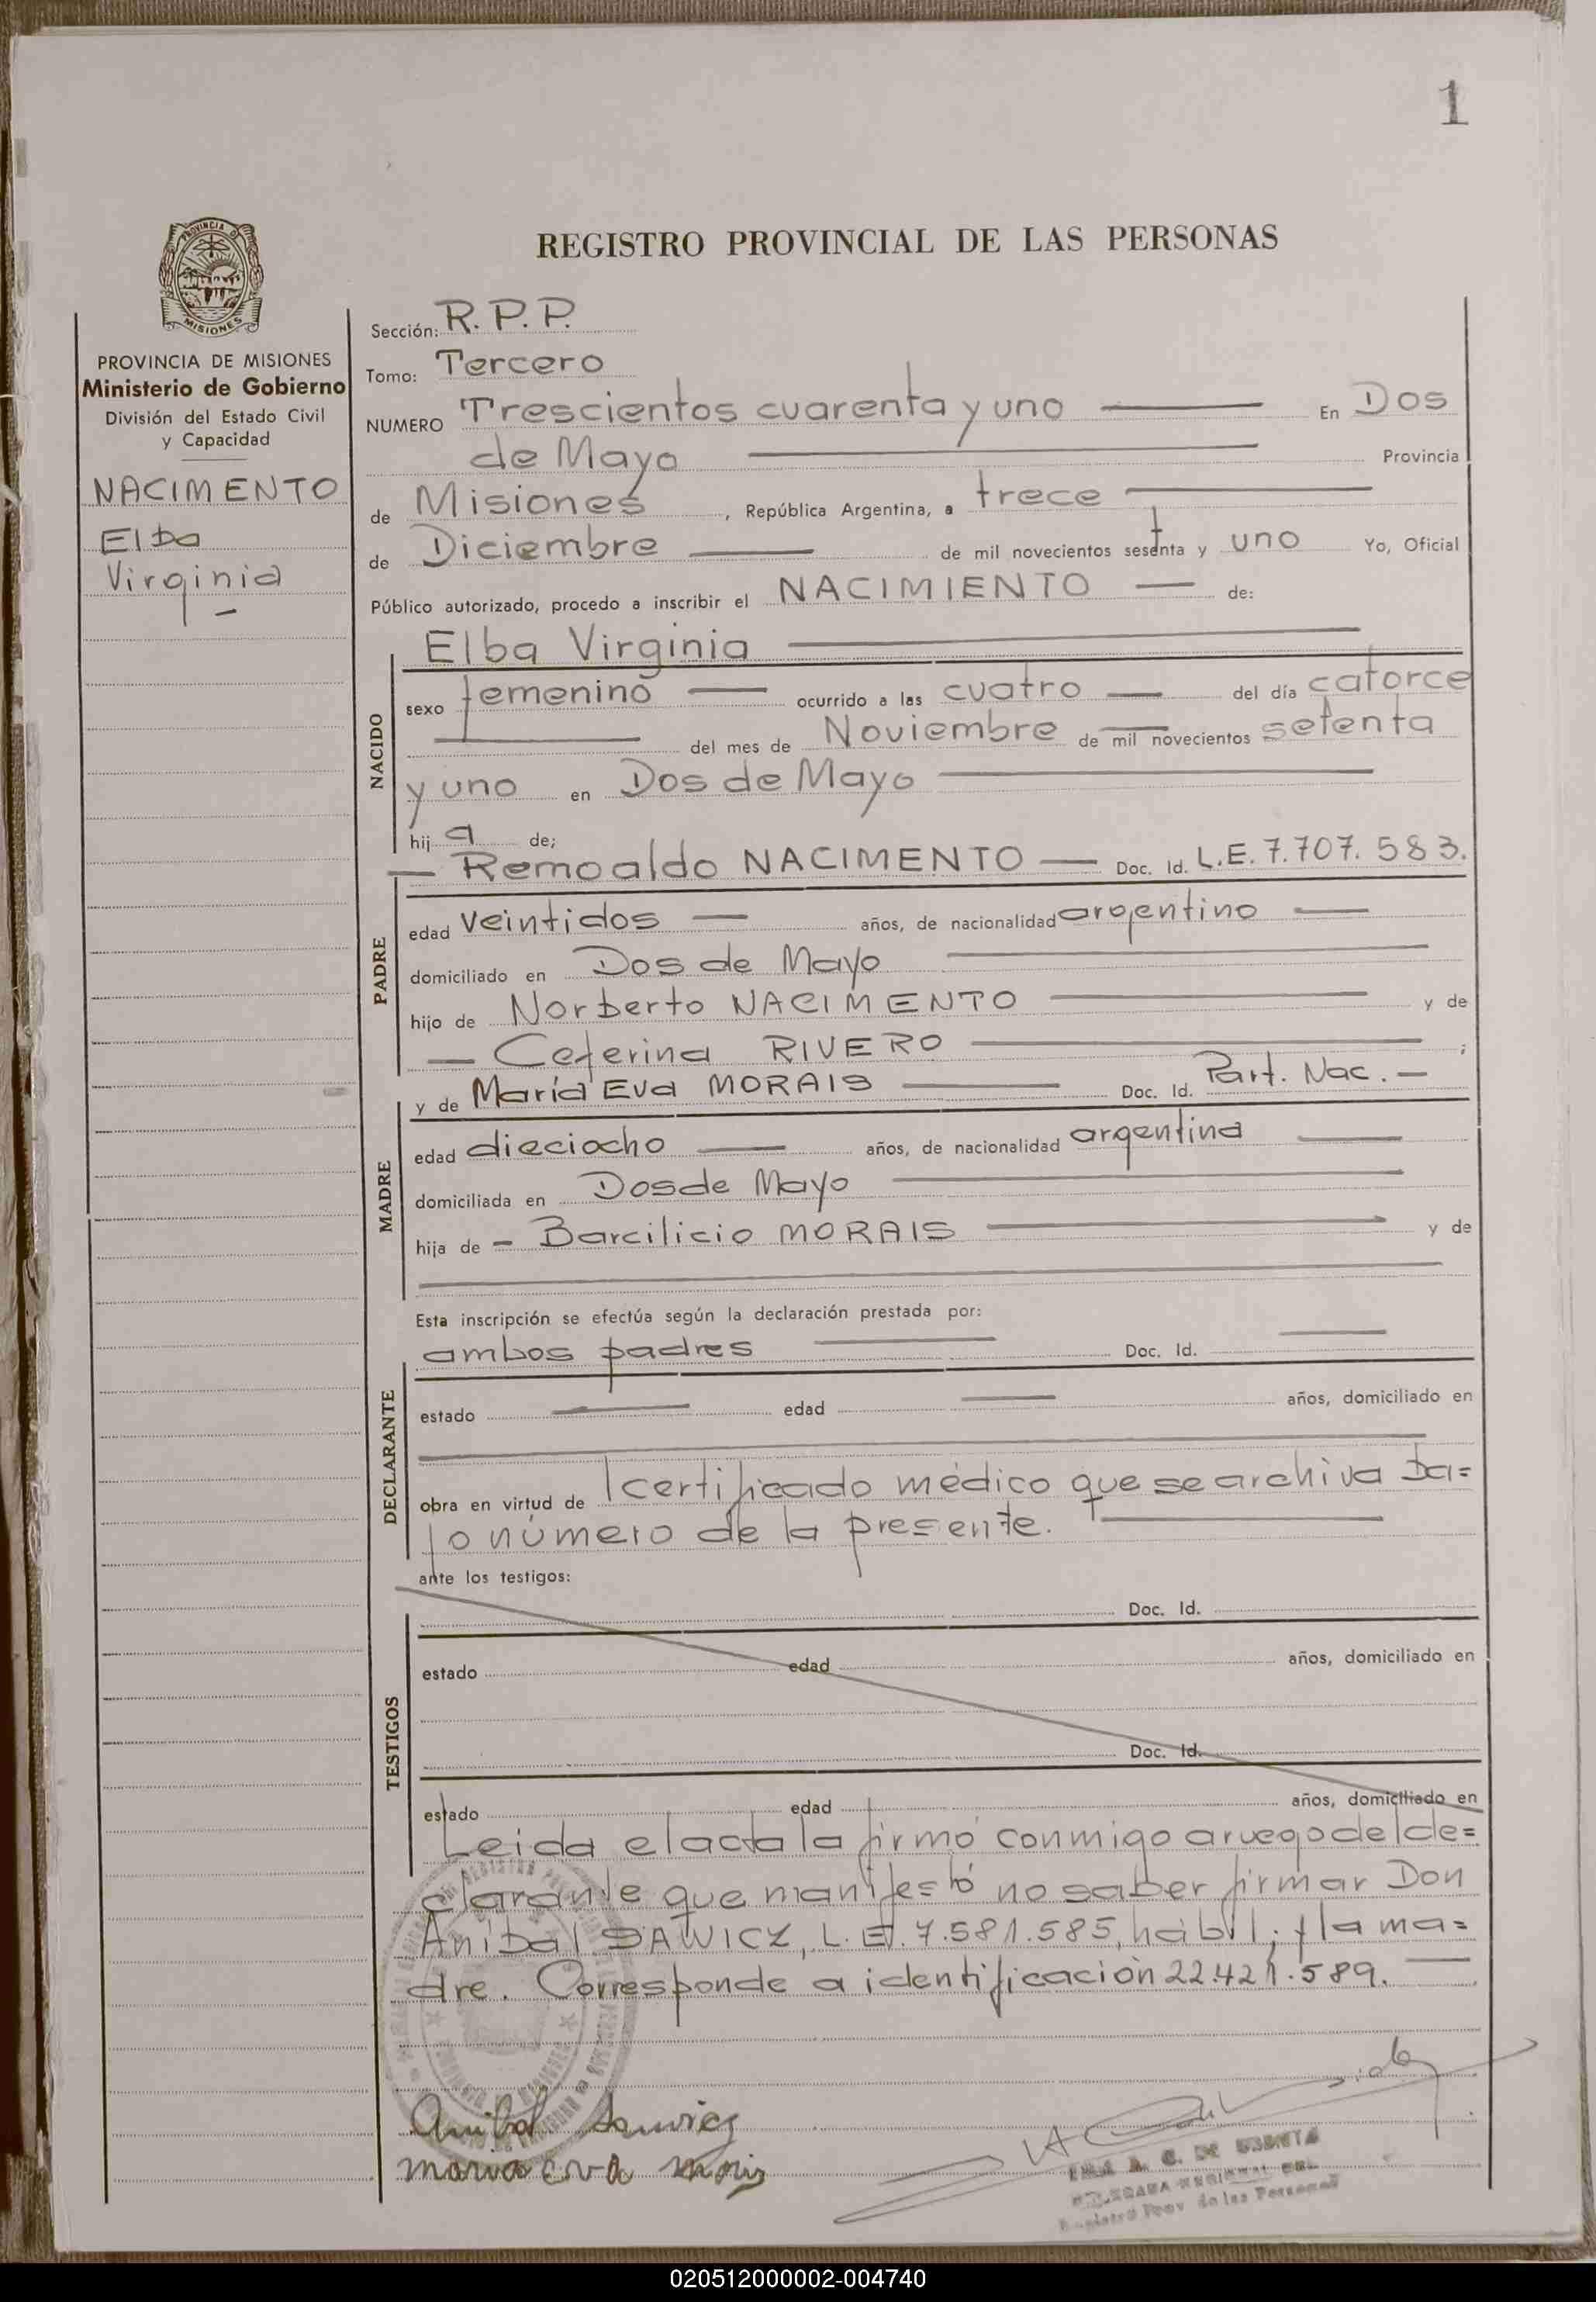 1
PROVINCIA DE
MISIONES
REGISTRO PROVINCIAL DE LAS PERSONAS
PROVINCIA DE MISIONES
Ministerio de Gobierno
División del Estado Civil
y Capacidad
NACIMENTO
Elba
Virginia
Sección: R.P.P.
Tomo: Tercero
NUMERO Trescientos cuarenta y uno En Dos
de Mayo Provincia
de Misiones, República Argentina, a trece
de Diciembre de mil novecientos sesenta y uno Yo, Oficial
Público autorizado, procedo a inscribir el NACIMIENTO de:
Elba Virginia
NACIDO
sexo femenino ocurrido a las cuatro del día catorce
del mes de Noviembre de mil novecientos setenta
y uno en Dos de Mayo
hij a de;
Remoaldo NACIMENTO Doc. Id. L.E. 7.707.583.
PADRE
edad veintidos años, de nacionalidad argentino
domiciliado en Dos de Mayo
hijo de Norberto NACIMENTO y de
Ceferina RIVERO ;
y de María Eva MORAIS Doc. Id. Part. Nac.-
MADRE
edad dieciocho años, de nacionalidad argentina
domiciliada en Dos de Mayo
hija de - Barcilicio MORAIS y de
Esta inscripción se efectúa según la declaración prestada por:
ambos padres Doc. Id.
DECLARANTE
estado edad años, domiciliado en
obra en virtud de certificado médico que se archiva ba=
jo número de la presente.
ante los testigos:
Doc. Id.
TESTIGOS
estado edad años, domiciliado en
Doc. Id.
estado edad años, domiciliado en
Leida el acta la firmó conmigo a ruego del de=
clarante que manifestó no saber firmar Don
Anibal SAWICZ, L.E. 7.581.585, hábil; y la ma=
dre. Corresponde a identificación 22.421.589.
Anibal Sawicz
maria eva
DE
Registro Prov. de las Personas
020512000002-004740